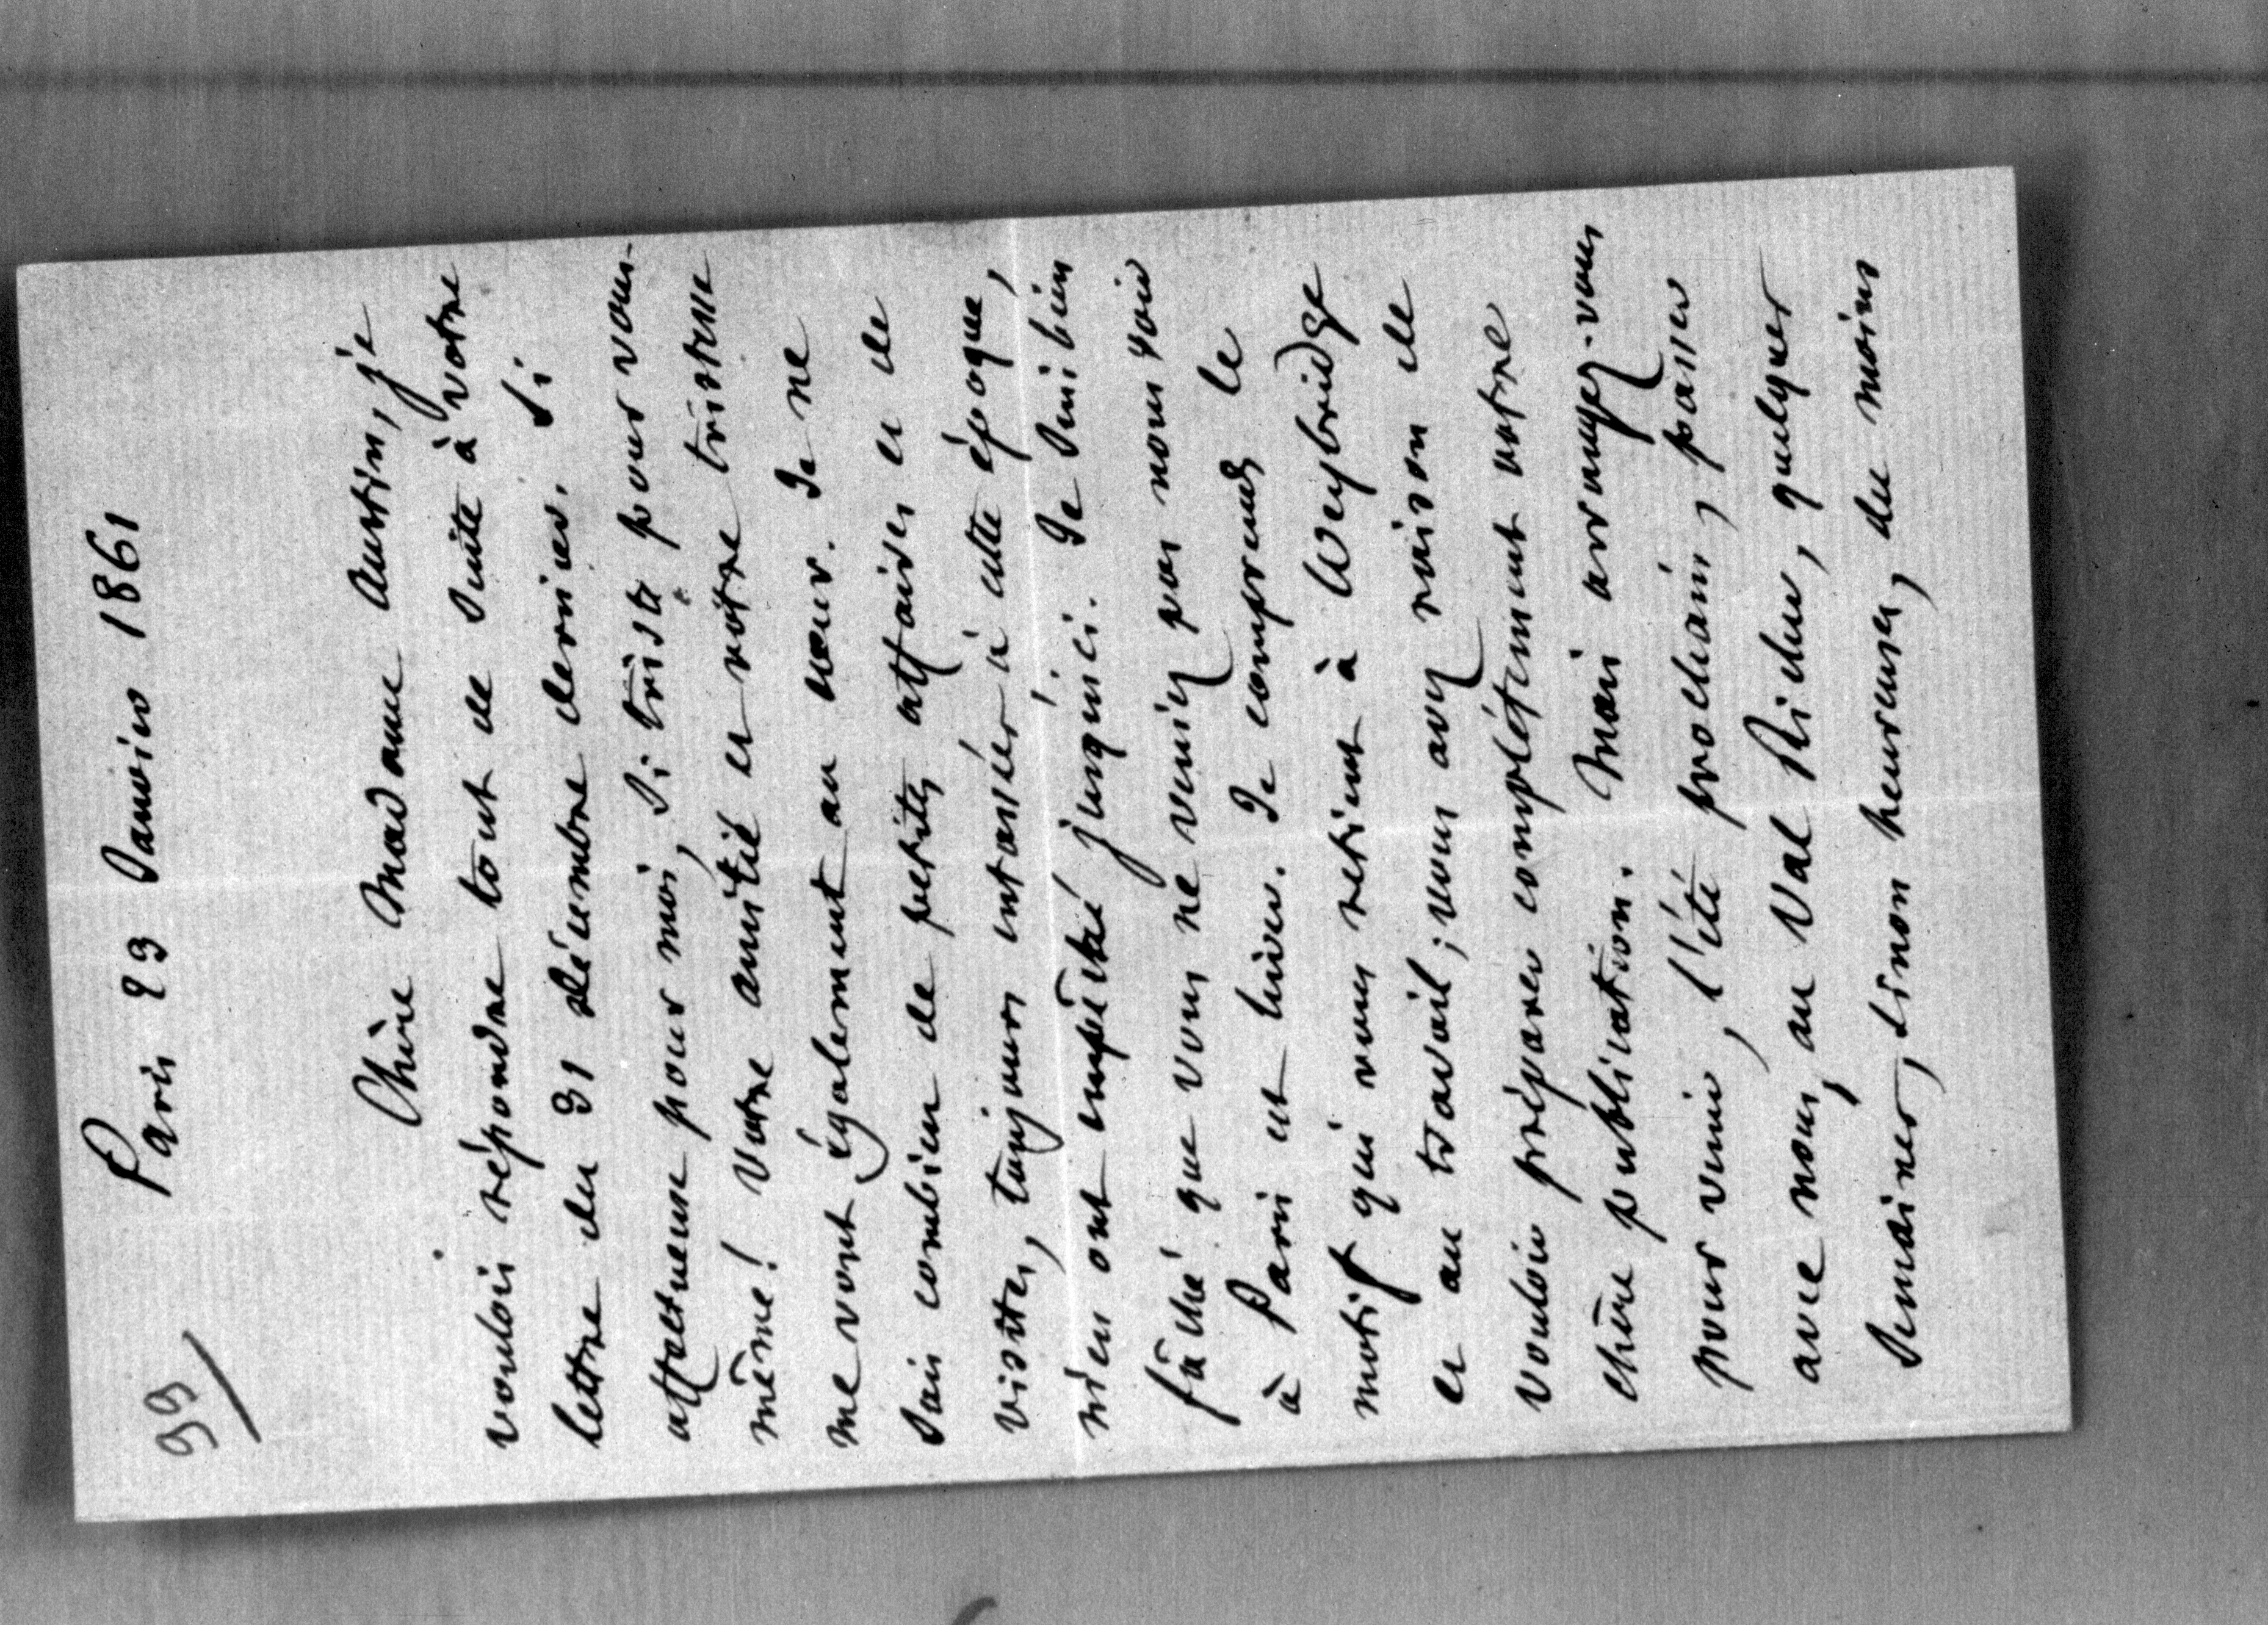 99/
Paris 23 Janvier 1861
Chère Madame Austin, je
voulois répondre tout de suite à votre
lettre du 31 décembre dernier. Si
affectueuse pour moi, si triste pour vous-
même! Votre amitié et votre tristesse
me vont également au cœur. Je ne
sais combien de petites affaires et de
visites, toujours entassées à cette époque,
m'en ont empêché jusqu'ici. Je suis bien
fâché que vous ne veniez pas nous voir
à Paris cet hiver. Je comprends le
motif qui vous retient à Weybridge
et au travail; vous avez raison de
vouloir préparer complétement votre
chère publication. Mais arrangez-vous
pour venir, l'été prochain, passer
avec nous, au Val Richer, quelques
semaines, sinon heureuses, du moins